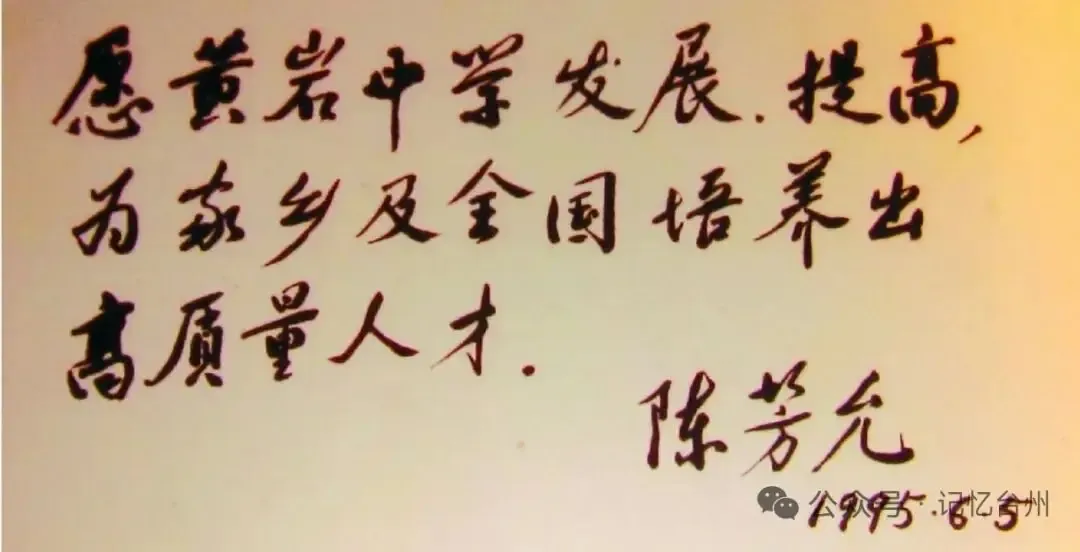 愿黄岩中学发展.提高,
为家乡及全国培养出
高质量人才.
陈芳允
1995.6.5
公众号·记忆台州